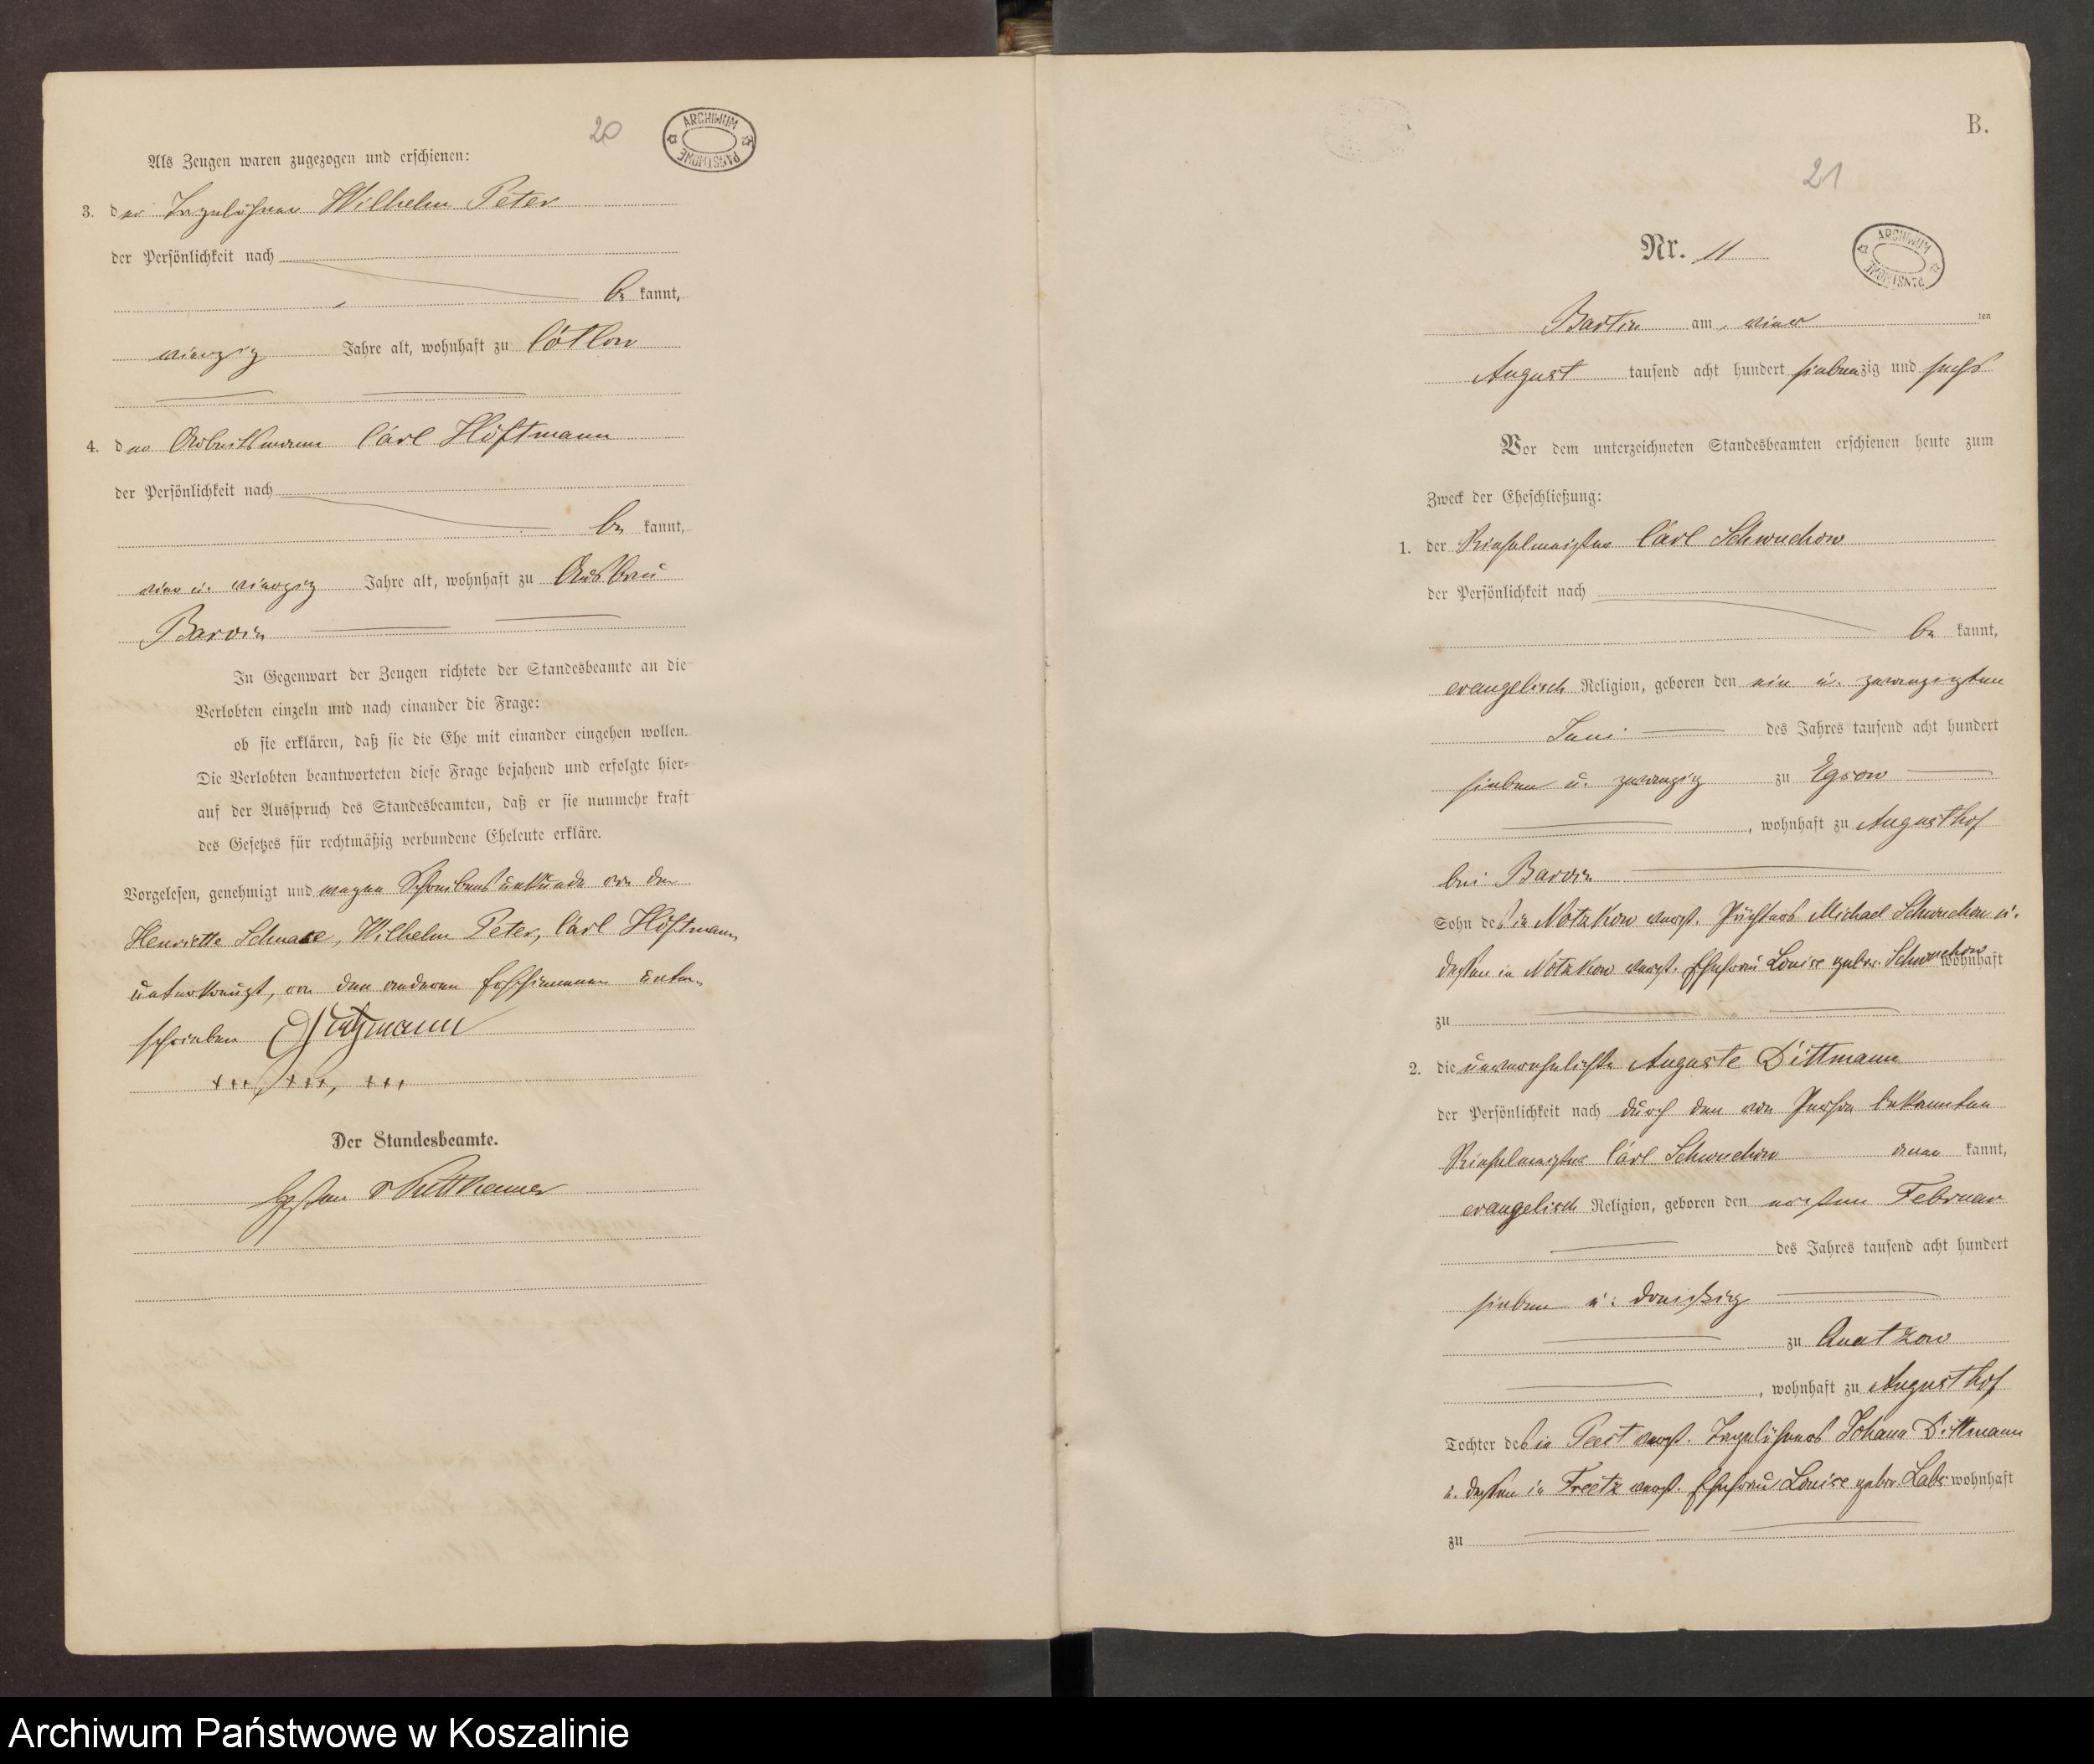 20
ARCHIWUM PAŃSTWOWE
Als Zeugen waren zugezogen und erschienen:
3. der Tagelöhner Wilhelm Peter
der Persönlichkeit nach
be kannt,
vierzig Jahre alt, wohnhaft zu Cötlow
4. der Arbeitsmann Carl Höftmann
der Persönlichkeit nach
be kannt,
vier u. vierzig Jahre alt, wohnhaft zu Ausbau
Barvin
In Gegenwart der Zeugen richtete der Standesbeamte an die
Verlobten einzeln und nach einander die Frage:
ob sie erklären, daß sie die Ehe mit einander eingehen wollen.
Die Verlobten beantworteten diese Frage bejahend und erfolgte hier-
auf der Ausspruch des Standesbeamten, daß er sie nunmehr kraft
des Gesetzes für rechtmäßig verbundene Eheleute erkläre.
Vorgelesen, genehmigt und wegen Schreibensunkunde von der
Henriette Schnase, Wilhelm Peter, Carl Höftmann
unterkreuzt, von den anderen Erschienenen unter-
schrieben
+++, +++, +++
Der Standesbeamte.
v Puttkamer
B.
21
Nr. 11
ARCHIWUM PAŃSTWOWE
Bartin am vier ten
August tausend acht hundert siebenzig und sechs
Vor dem unterzeichneten Standesbeamten erschienen heute zum
Zweck der Eheschließung:
1. der Rieselmeister Carl Schwuchow
der Persönlichkeit nach
be kannt,
evangelisch Religion, geboren den ein u. zwanzigsten
Juni des Jahres tausend acht hundert
sieben u. zwanzig zu Egsow
, wohnhaft zu Augusthof
bei Barvin
Sohn des in Notzkow verst. Pächters Michael Schwuchow u.
dessen in Nötzkow verst. Ehefrau Louise gebor. Schwuchow wohnhaft
zu
2. die unverehelichte Auguste Dittmann
der Persönlichkeit nach durch den von Person bekannten
Rieselmeister Carl Schwuchow aner kannt,
evangelisch Religion, geboren den ersten Februar
des Jahres tausend acht hundert
sieben u. dreißig
zu Quatzow
, wohnhaft zu Augusthof
Tochter des in Peest verst. Tagelöhners Johann Dittmann
u. dessen in Freetz verst. Ehefrau Louise gebor. Labs wohnhaft
zu
Archiwum Państwowe w Koszalinie